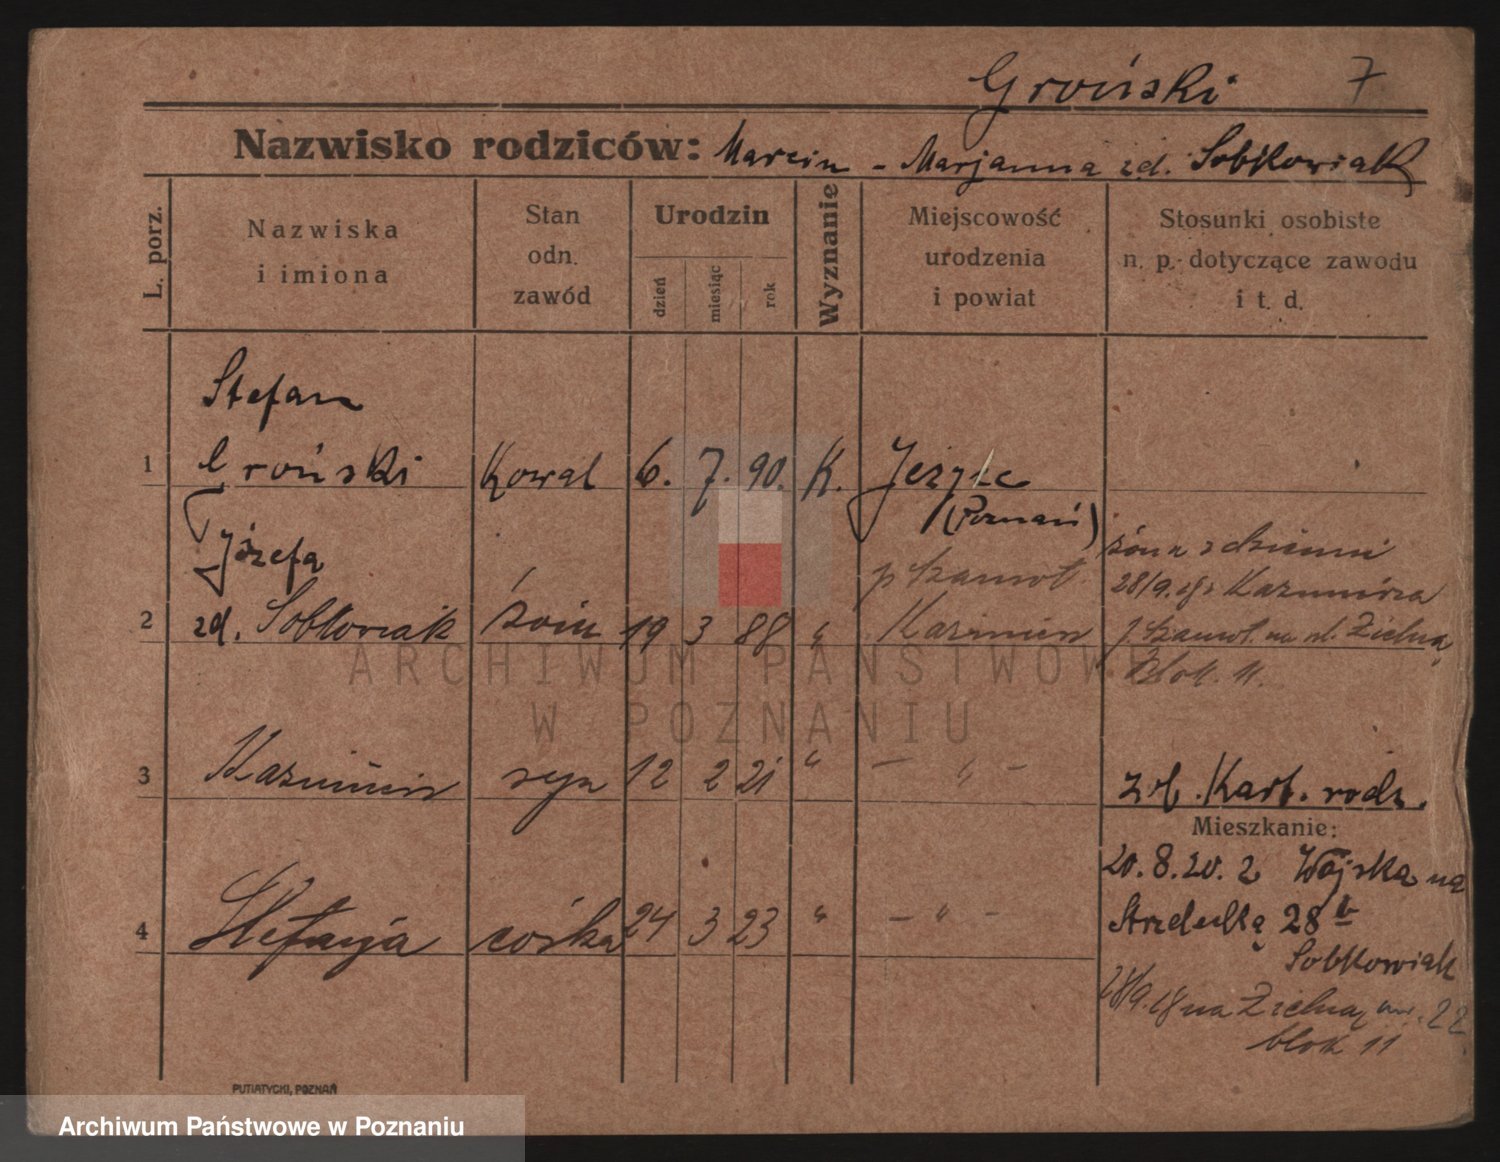 Groński 7
Nazwisko rodziców: Marcin - Marjanna zd. Sobkowiak
L. porz.
Nazwiska
i imiona
Stan
odn.
zawód
Urodzin
dzień
miesiąc
rok
Wyznanie
Miejscowość
urodzenia
i powiat
Stosunki osobiste
n. p. dotyczące zawodu
i t. d.
Stefan
1 Groński Kowal 6. 7. 90. K. Jeżyce
(Poznań)
Józefa
żona z dziećmi
p Szamot.
28/9. z Kazimierza
2 zd. Sobkowiak żona 19 3 88 " Kazimierz
p. Szamot. na ul. Zielną
blok. 11.
3 Kazimierz syn 12 2 21 " — " —
zob. Kart. rodz.
Mieszkanie:
20.8.20. z Wojska na
4 Stefanja córka 24 3 23 " — " —
Strzelecką 28 b
Sobkowiak
28/9. na Zielną nr. 22
blok 11
PUTIATYCKI, POZNAŃ
ARCHIWUM PAŃSTWOWE
W POZNANIU
Archiwum Państwowe w Poznaniu